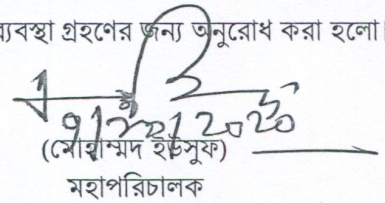 ব্যবস্থা গ্রহণের জন্য অনুরোধ করা হলো।
(মোহাম্মদ ইউসুফ)
মহাপরিচালক